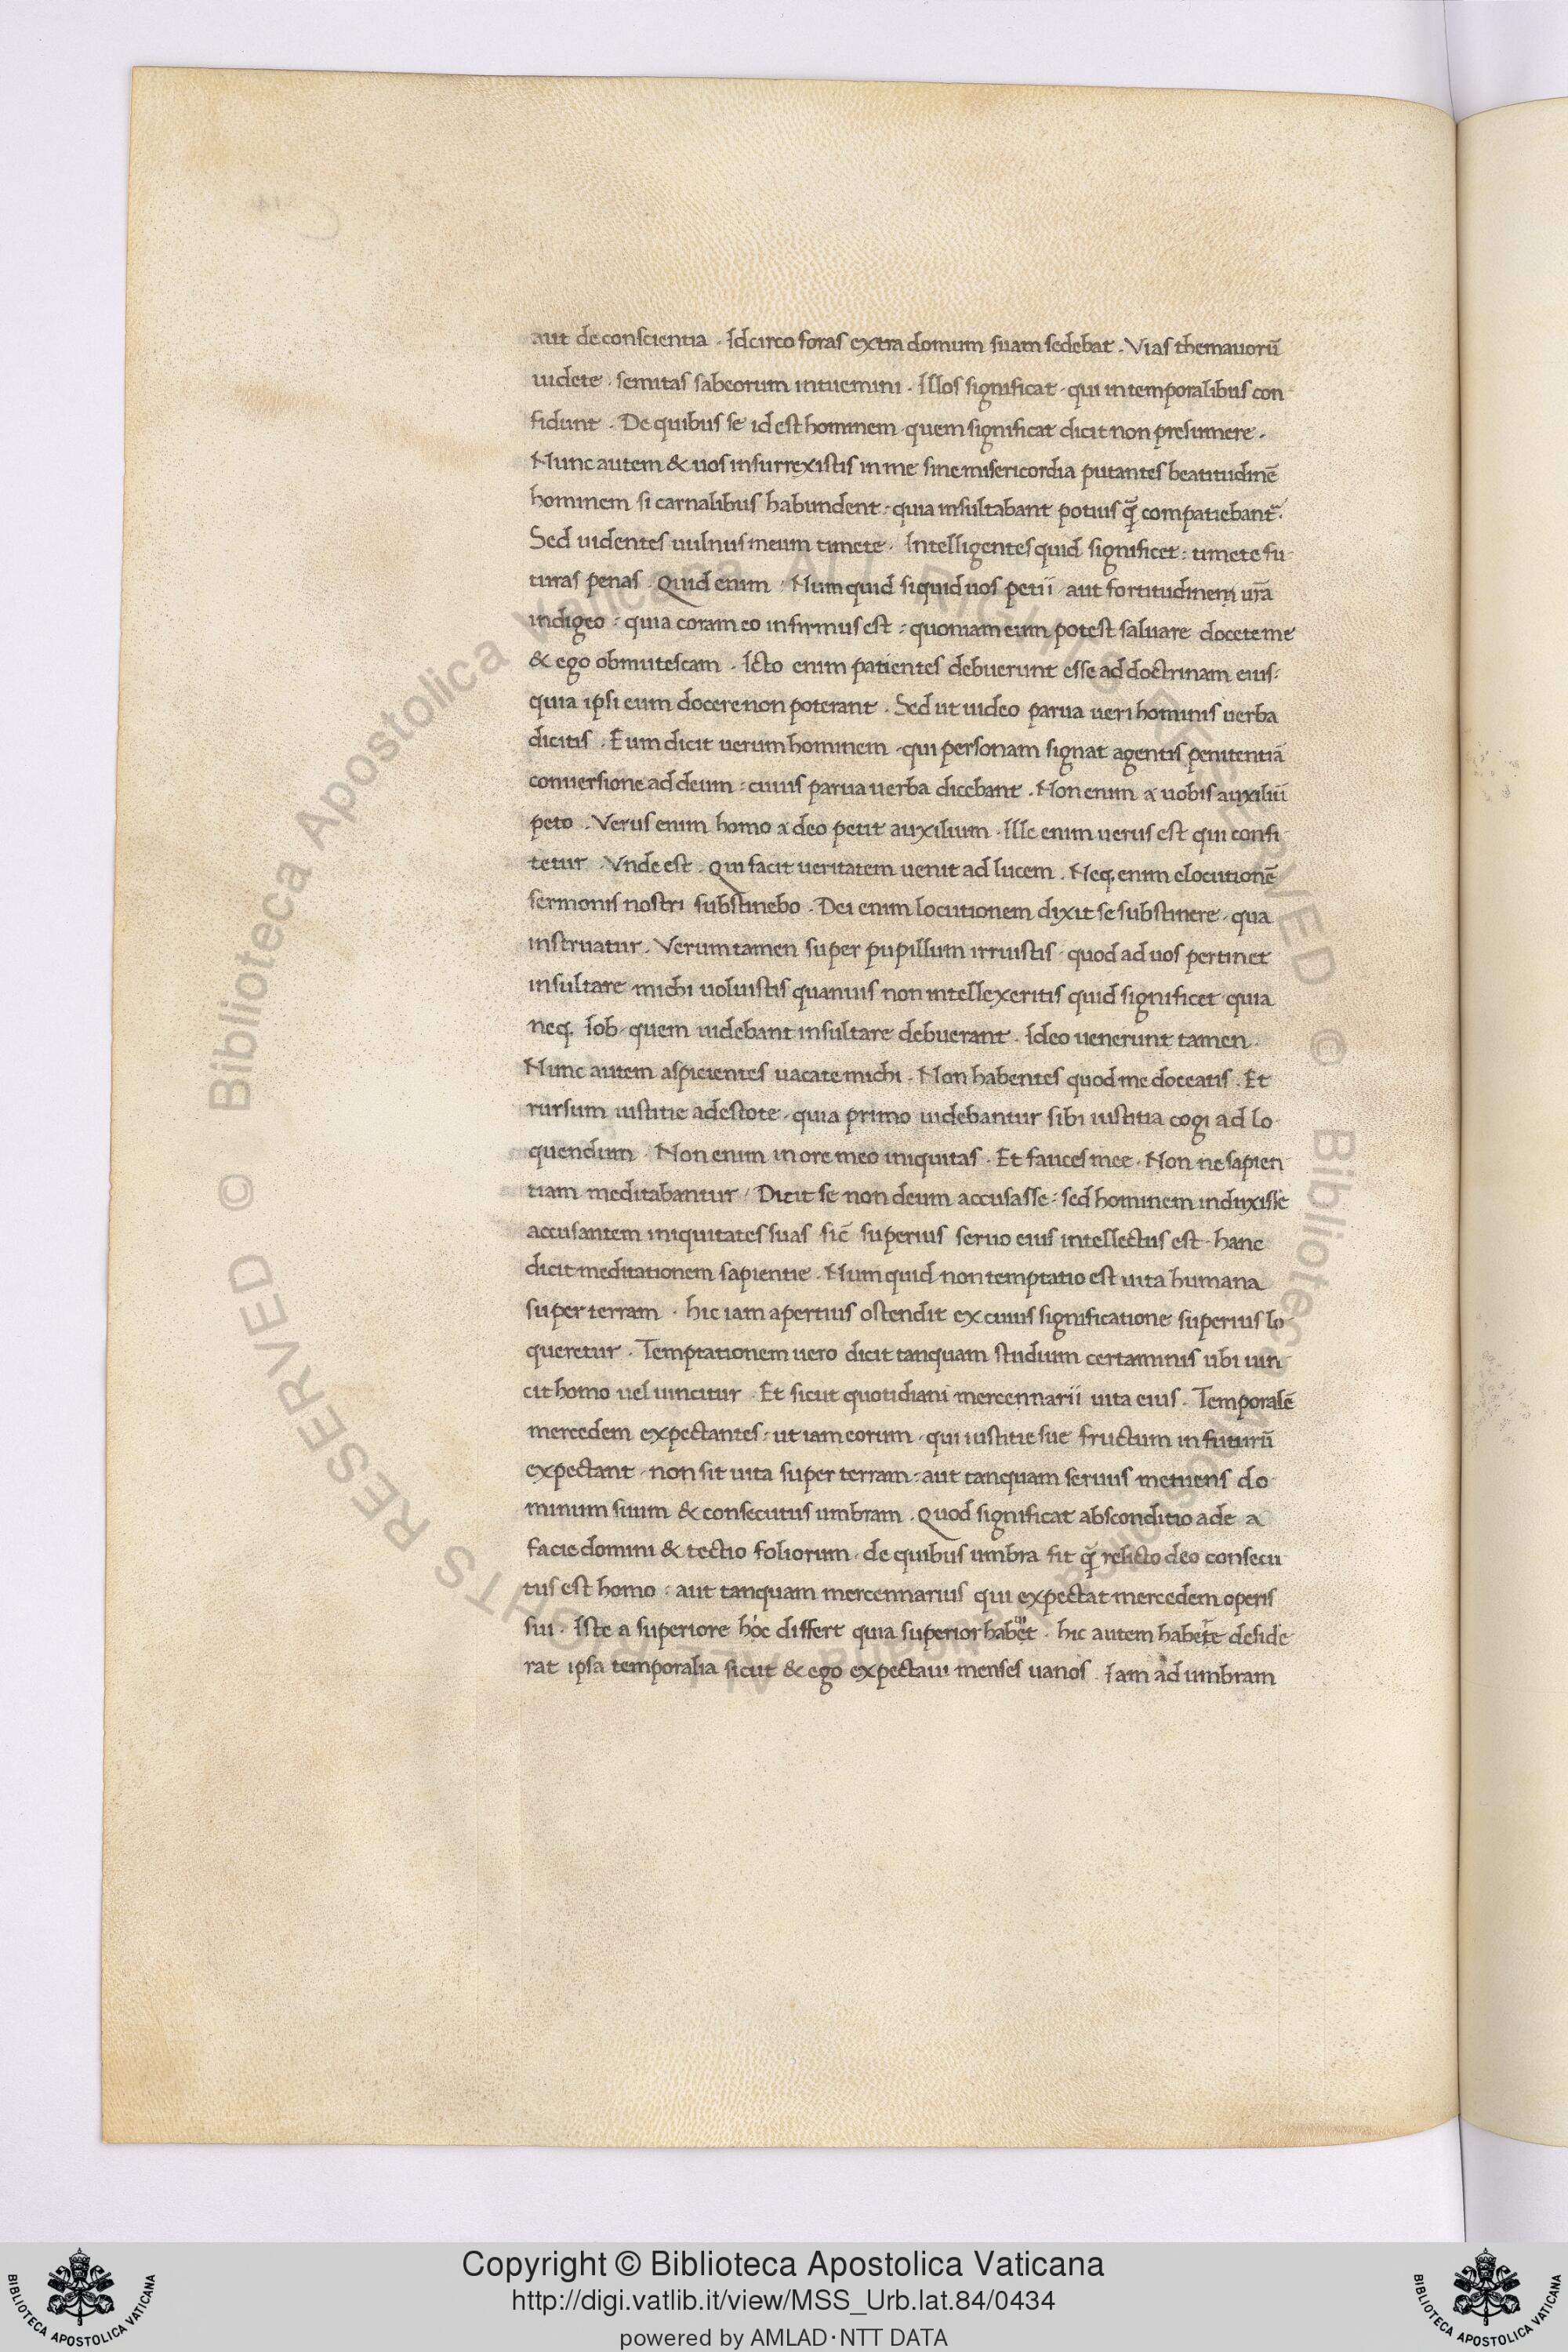 aut de conscientia . Idcirco foras extra domum suam sedebat . Vias themauorū
uidete . semitas sabeorum intuemini . Illos significat . qui in temporalibus con
fidunt . De quibus se id est hominem quem significat dicit non presumere .
Nunc autem & uos insurrexistis in me sine misericordia putantes beatitudinē
hominem si carnalibus habundent : quia insultabant potius q̄ compatiebant̄ .
Sed uidentes uulnus meum timete . Intelligentes quid significet : timete fu
turas penas . Quid enim . Numquid siquid uos petii aut fortitudinem ur̄a
indigeo : quia coram eo infirmus est : quoniam eum potest saluare docete me
& ego obmutescam . Icto enim patientes debuerunt esse ad doctrinam eius :
quia ipsi eum docere non poterant . Sed ut uideo parua ueri hominis uerba
dicitis . Eum dicit uerum hominem . qui personam signat agentis penitentiā
conuersione ad deum : cuius parua uerba dicebant . Non enim a uobis auxiliū
peto . Verus enim homo a deo petit auxilium . Ille enim uerus est qui confi
tetur . Vnde est . Qui facit ueritatem uenit ad lucem . Neq. enim elocutionē
sermonis nostri substinebo . Dei enim locutionem dixit se substinere . qua
instruatur . Verum tamen super pupillum irruistis . quod ad uos pertinet
insultare michi uoluistis quamuis non intellexeritis quid significet quia
neq. Iob quem uidebant insultare debuerant . Ideo uenerunt tamen .
Nunc autem aspicientes uacate michi . Non habentes quod me doceatis . Et
rursum iustitie adestote . quia primo uidebantur sibi iustitia cogi ad lo
quendum . Non enim in ore meo iniquitas . Et fauces mee . Non ne sapien
tiam meditabantur / Dicit se non deum accusasse : sed hominem induxisse
accusantem iniquitates suas sic̄ superius seruo eius intellectus est . hanc
dicit meditationem sapientie . Numquid non temptatio est uita humana
super terram . hic iam apertius ostendit ex cuius significatione superius lo
queretur . Temptationem uero dicit tanquam studium certaminis ubi uin
cit homo uel uincitur . Et sicut quotidiani mercennarii uita eius . Temporalē
mercedem expectantes : ut iam eorum . qui iustitie sue fructum in futurū
expectant . non sit uita super terram : aut tanquam seruus metuens do
minum suum & consecutus umbram . Quod significat absconditio ade a
facie domini & tectio foliorum . de quibus umbra fit q̄ relicto deo consecu
tus est homo : aut tanquam mercennarius qui expectat mercedem operis
sui . Iste a superiore hoc differt quia superior habet . hic autem habere deside
rat ipsa temporalia sicut & ego expectaui menses uanos . Iam ad umbram
Copyright © Biblioteca Apostolica Vaticana
http://digi.vatlib.it/view/MSS_Urb.lat.84/0434
powered by AMLAD·NTT DATA
BIBLIOTECA APOSTOLICA VATICANA
BIBLIOTECA APOSTOLICA VATICANA
© Biblioteca Apostolica Vaticana ALL RIGHTS RESERVED © Biblioteca Apostolica Vaticana ALL RIGHTS RESERVED